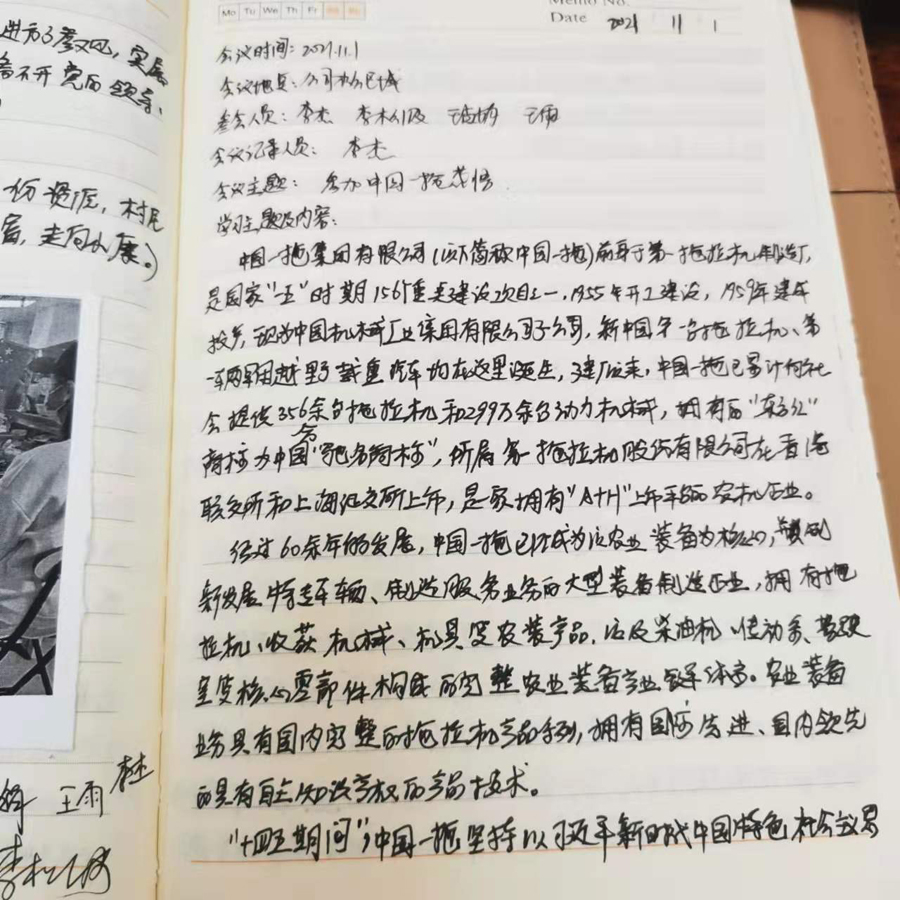 进行了参观,
离不开党的领导、
份资源,村民
富,走向小康。)
王雨 李杰
Mo Tu We Th Fr
Memo No.
Date 2021 11 1
会议时间:2021.11.1
会议地点:公司办公区域
参会人员:李杰 李松 王雨
会议记录人员:李杰
会议主题:参加中国一拖感悟.
学习主题及内容:
中国一拖集团有限公司(以下简称中国一拖)前身于第一拖拉机制造厂,
是国家"一五"时期156个重点建设项目之一,1955年开工建设,1959年建成
投产,现为中国机械工业集团有限公司子公司,新中国第一台拖拉机、第
一辆军用越野载重汽车均在这里诞生,建厂以来,中国一拖已累计向社
会提供356余台拖拉机和299万余台动力机械,拥有的"东方红"
商标为中国"驰名商标",所属第一拖拉机股份有限公司在香港
联交所和上海证交所上市,是家拥有"A+H"上市平台的农机企业。
经过60余年的发展,中国一拖已成为以农业装备为核心,
新发展特专车辆、制造服务业务的大型装备制造企业,拥有拖
拉机、收获机械、机具等农装产品,以及柴油机、传动系、驾驶
室等核心零部件构成的完整农业装备产业链体系。农业装备
业务具有国内完整的拖拉机产品系列,拥有国际先进、国内领先
的具有自主知识产权的产品技术。
"十四五期间",中国一拖坚持以习近平新时代中国特色社会主义思